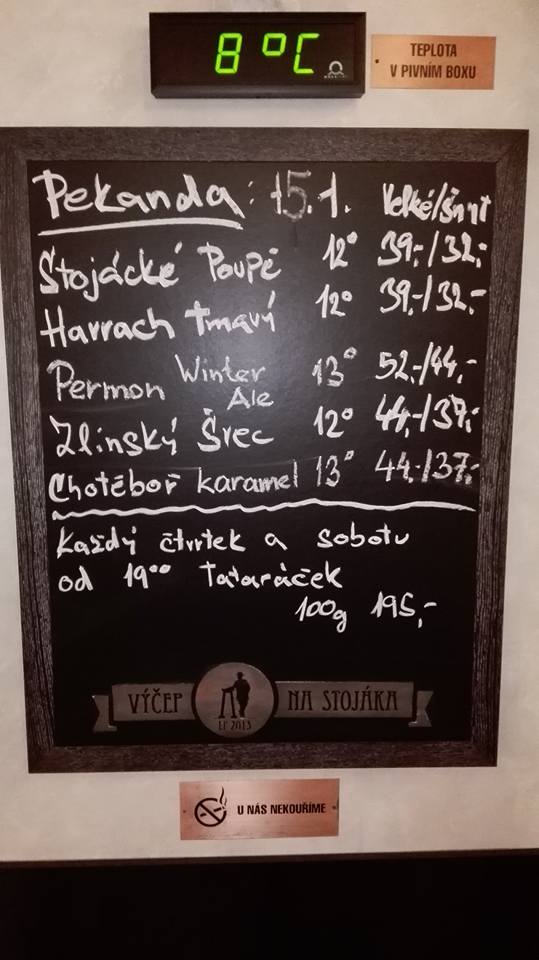 8°C
TEPLOTA
V PIVNÍM BOXU
Pekanda: 15.1. Velké/šnyt
Stojácké Poupě 12° 39,-/32,-
Harrach tmavý 12° 39,-/32,-
Permon Winter Ale 13° 52,-/44,-
Zlínský Švec 12° 44,-/37,-
Chotěboř karamel 13° 44,-/37,-
Každý čtvrtek a sobotu
od 19⁰⁰ Tataráček
100g 195,-
VÝČEP NA STOJÁKA
EP 2013
U NÁS NEKOUŘÍME